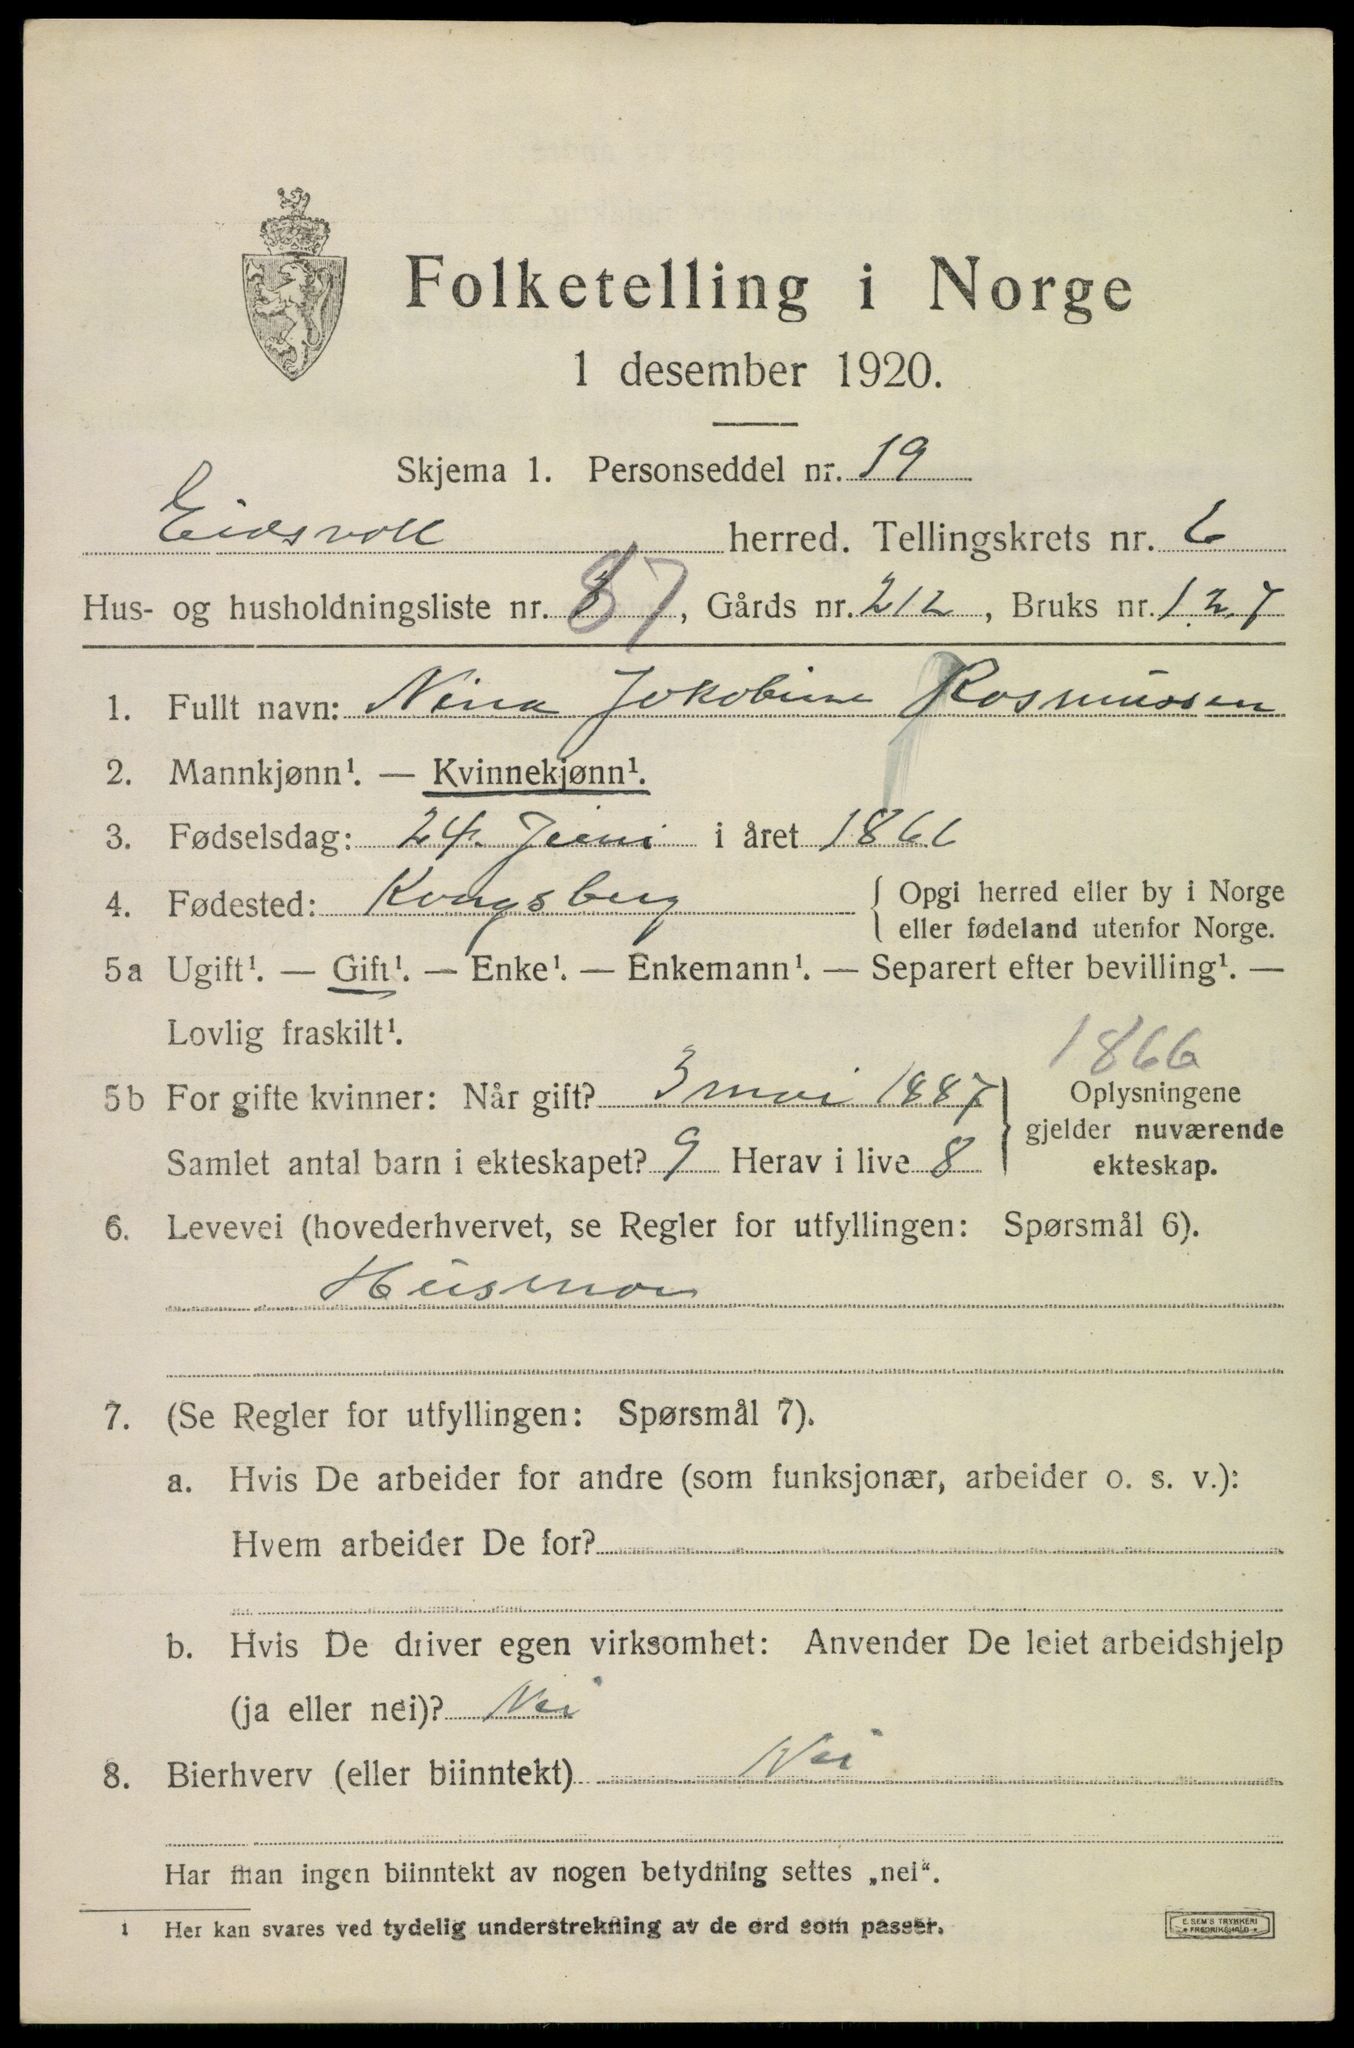 Folketelling i Norge
1 desember 1920.
Skjema 1. Personseddel nr. 19
Eidsvoll herred. Tellingskrets nr. 6
Hus- og husholdningsliste nr. 87, Gårds nr. 212, Bruks nr. 127
1. Fullt navn: Nina Jokobine Rasmussen
2. Mannkjønn¹. — Kvinnekjønn¹.
3. Fødselsdag: 24. Juni i året 1866
4. Fødested: Kongsberg { Opgi herred eller by i Norge
eller fødeland utenfor Norge.
5a Ugift¹. — Gift¹. — Enke¹. — Enkemann¹. — Separert efter bevilling¹. —
Lovlig fraskilt¹.
1866
5b For gifte kvinner: Når gift? 3 mai 1887 } Oplysningene
gjelder nuværende
Samlet antal barn i ekteskapet? 9 Herav i live 8
ekteskap.
6. Levevei (hovederhvervet, se Regler for utfyllingen: Spørsmål 6).
Husmor
7. (Se Regler for utfyllingen: Spørsmål 7).
a. Hvis De arbeider for andre (som funksjonær, arbeider o. s. v.):
Hvem arbeider De for?
b. Hvis De driver egen virksomhet: Anvender De leiet arbeidshjelp
(ja eller nei)? Nei
8. Bierhverv (eller biinntekt) Nei
Har man ingen biinntekt av nogen betydning settes „nei“.
1 Her kan svares ved tydelig understrekning av de ord som passer.
E. SEM'S TRYKKERI
FREDRIKSHALD